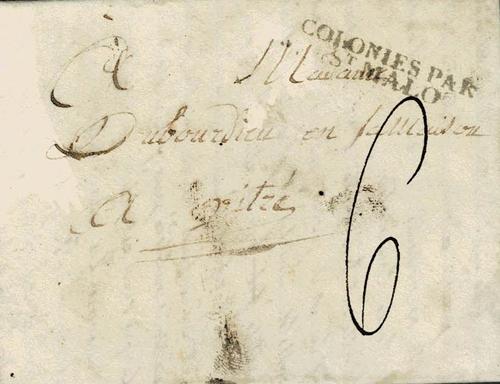 COLONIES PAR
ST MALO
A Madame
Dubourdieu en sa Maison
A vitré
6